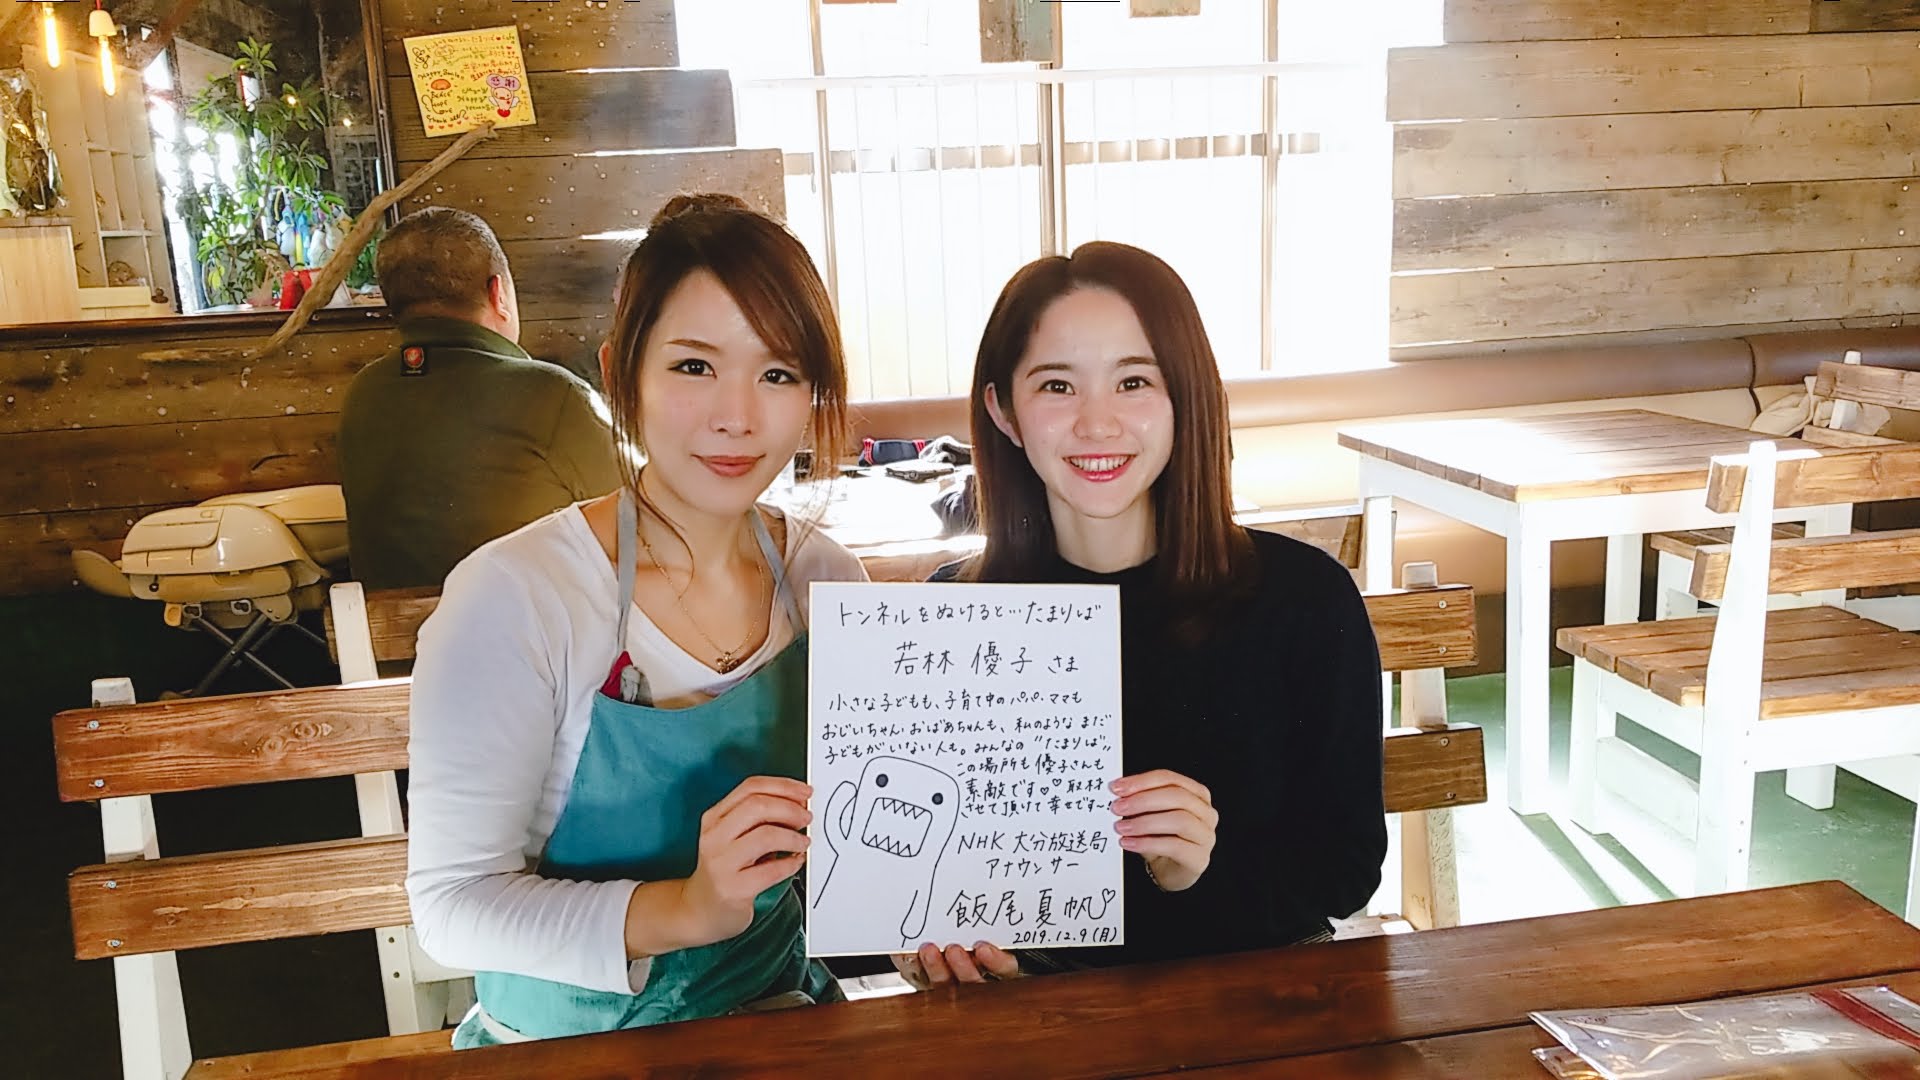 トンネルをぬけると…たまりば
若林 優子 さま
小さな子どもも、子育て中のパパ・ママも
おじいちゃん・おばあちゃんも、私のような まだ
子どもが いない 人も。みんなの "たまりば"
この場所も 優子さんも
素敵です♡♡ 取材
させて頂けて 幸せです〜!
NHK 大分放送局
アナウンサー
飯尾 夏帆♡
2019.12.9(月)
感謝
Peace